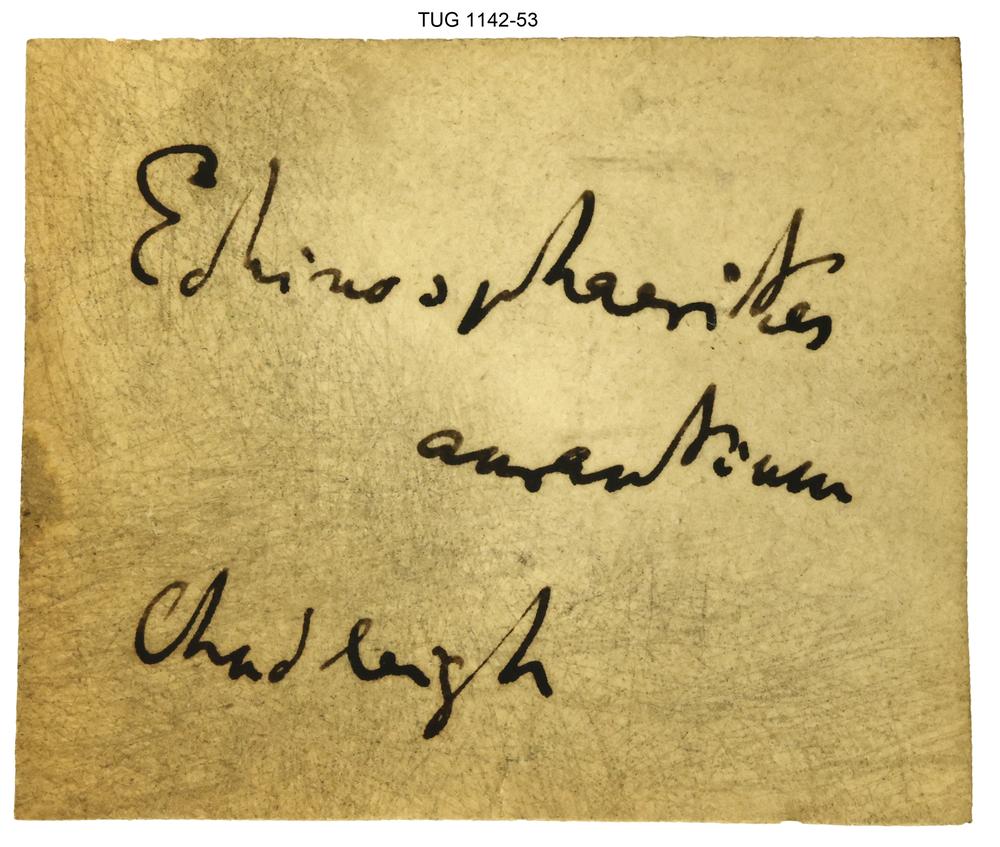 TUG 1142-53
Echinosphaerites
aurantium
Chudleigh